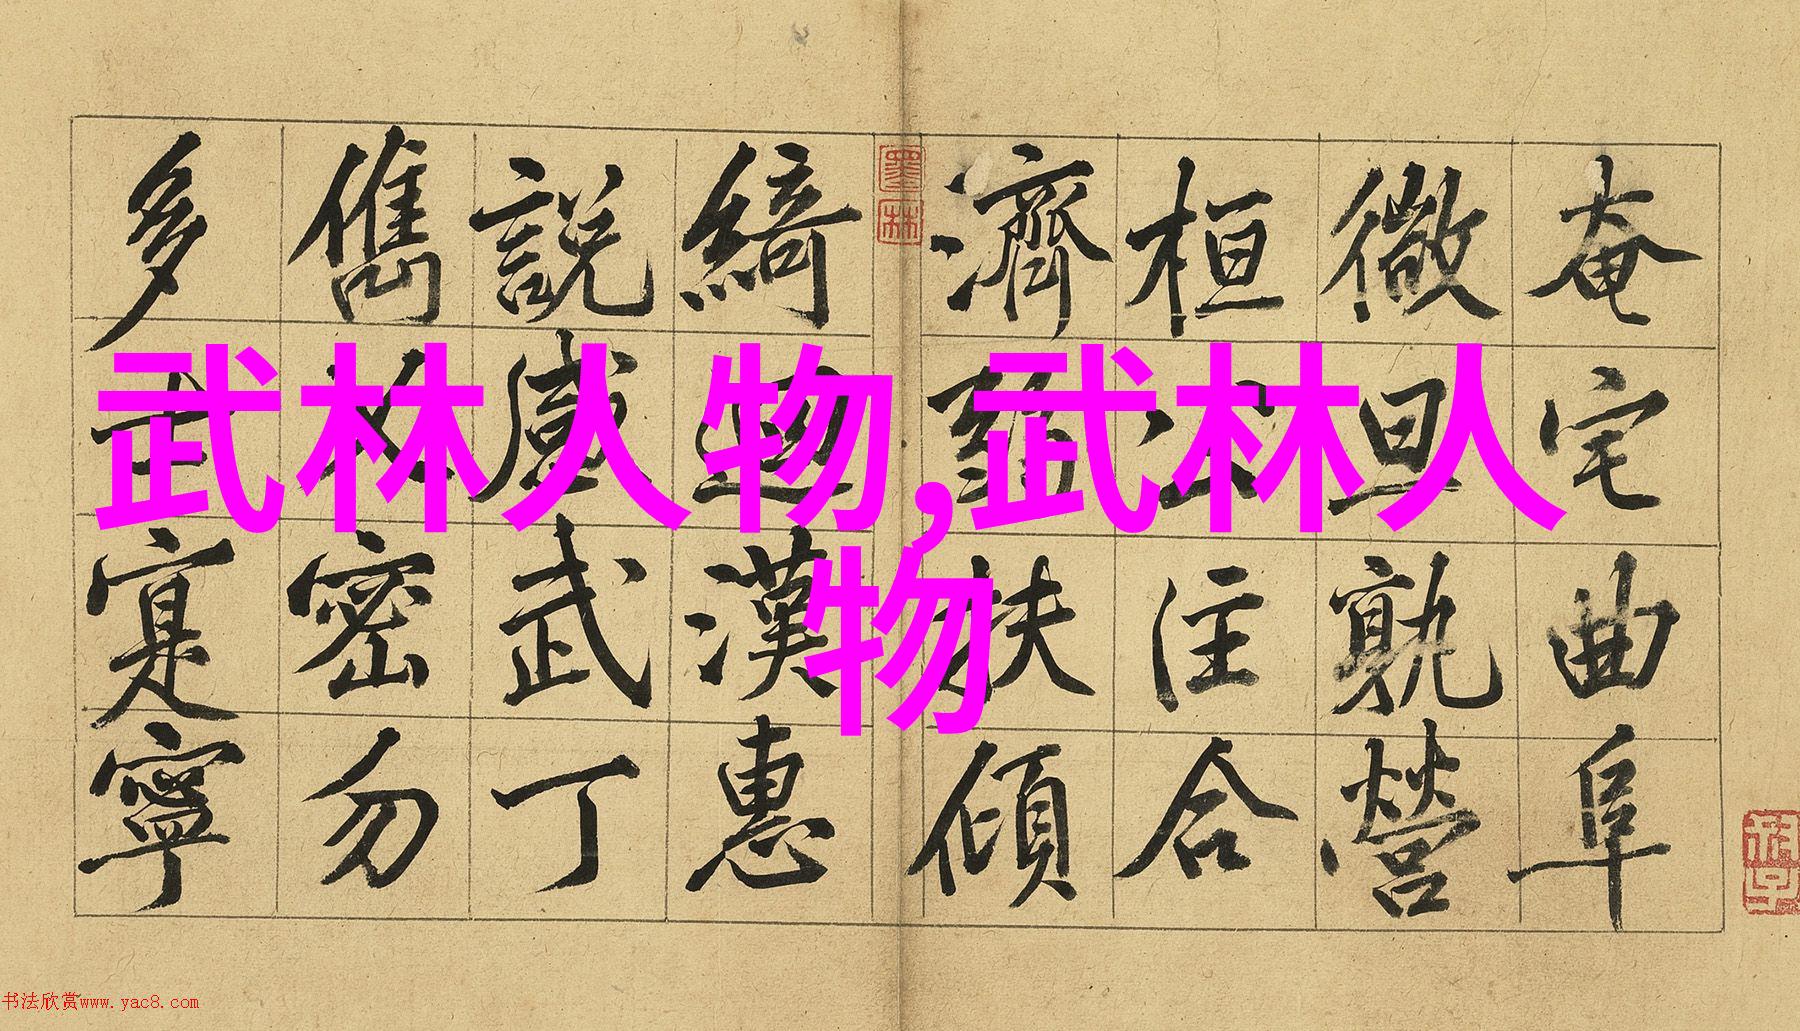 奄宅曲阜
微旦孰營
桓公匡合
濟弱扶傾
綺迴漢惠
說感武丁
儁乂密勿
多士寔寧
墨林
武林人物,武林人
物
书法欣赏www.yac8.com